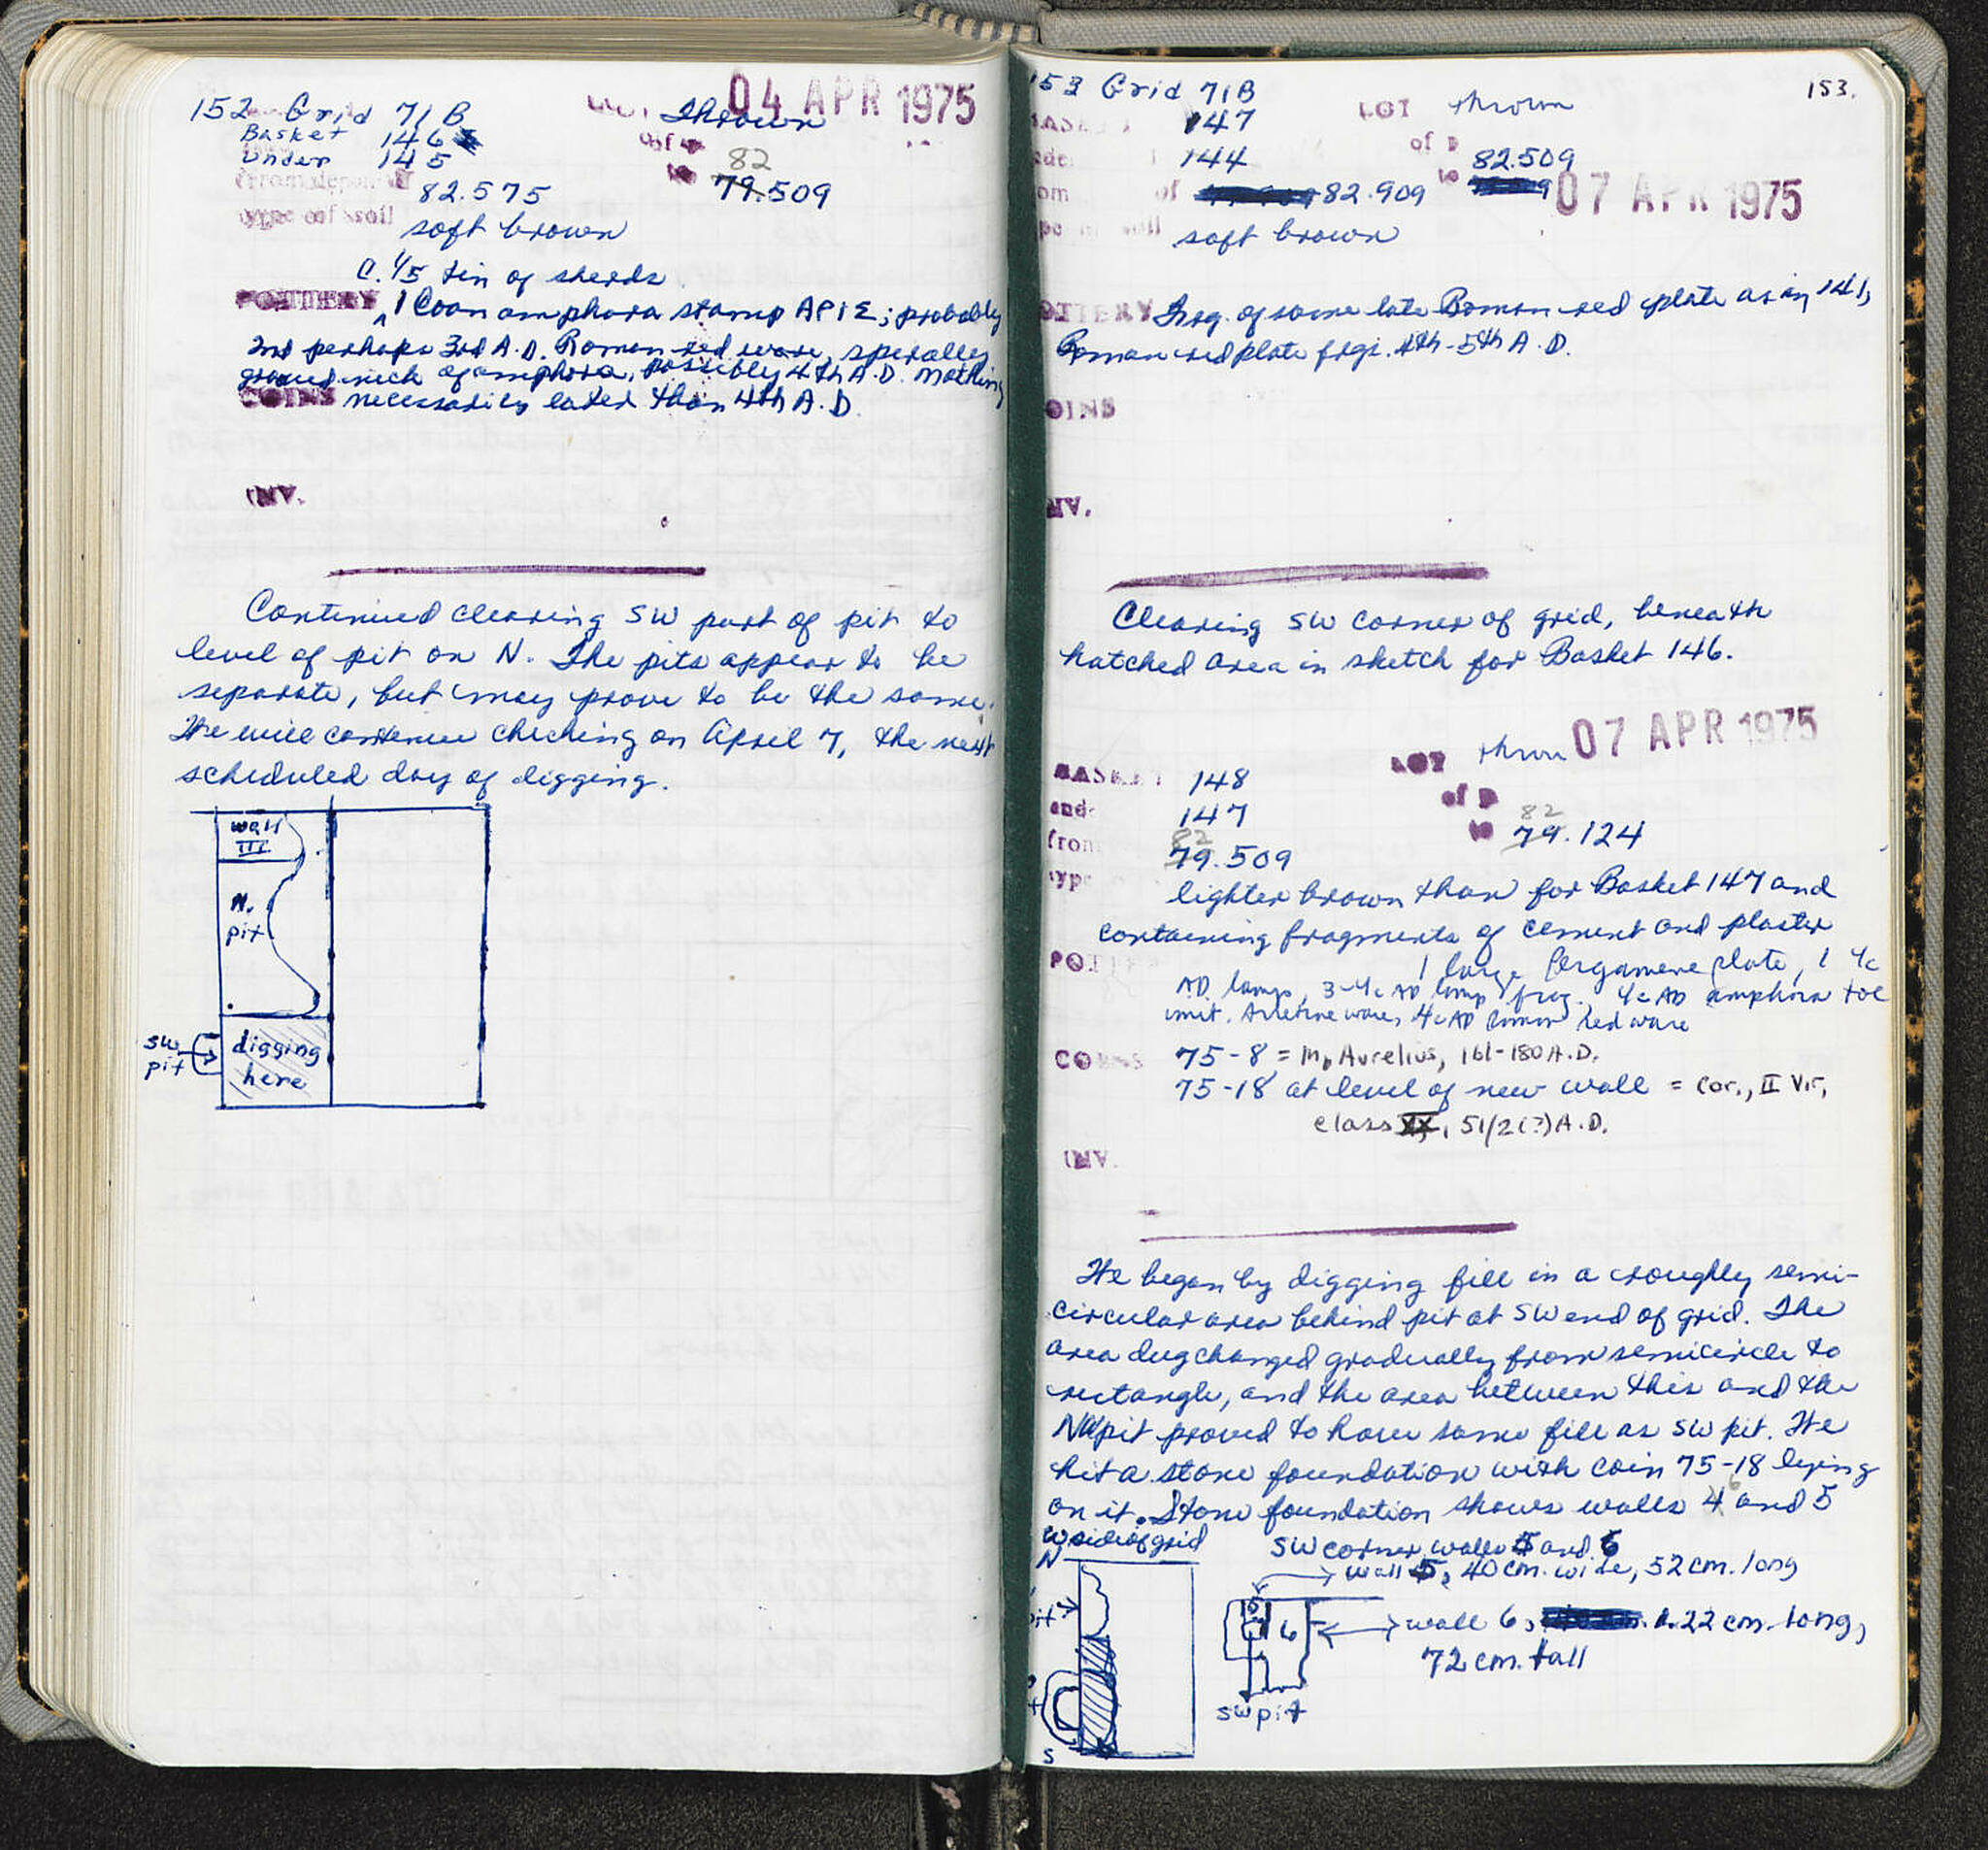 152 Grid 71B
04 APR 1975
LOT Thrown
Basket 146
Under 145
82
from 82.575 to 79.509
type of soil
soft brown
C. 1/5 tin of sherds
POTTERY 1 Coan amphora stamp APIΣ; probably
2nd perhaps 3rd A.D. Roman red ware, spirally
grooved neck of amphora, possibly 4th A.D. Nothing
COINS necessarily later than 4th A.D.
INV.
Continued clearing SW part of pit to
level of pit on N. The pits appear to be
separate, but may prove to be the same.
We will continue checking on April 7, the next
scheduled day of digging.
wall
III
N.
pit
SW
pit
digging
here
153 Grid 71B
153.
BASKET 147
LOT thrown
under 144
of 82.909 to 82.509
07 APR 1975
soft brown
POTTERY Frag. of same late Roman red plate as in 141,
Roman red plate frgs. 4th-5th A.D.
COINS
INV.
Clearing SW corner of grid, beneath
hatched area in sketch for Basket 146.
07 APR 1975
LOT thrown
BASKET 148
under 147
82
from 79.509
82
to 79.124
type
lighter brown than for Basket 147 and
containing fragments of cement and plaster
POTTERY 1 large Pergamene plate, 1 4c
AD lamp, 3-4c AD lamp frag., 4c AD amphora toe
imit. Arretine ware, 4c AD Roman Red ware
COINS 75-8 = M. Aurelius, 161-180 A.D.
75-18 at level of new wall = Cor., II Vir,
class XX, 51/2(?) A.D.
INV.
We began by digging fill in a roughly semi-
circular area behind pit at SW end of grid. The
area dug changed gradually from semicircle to
rectangle, and the area between this and the
NW pit proved to have same fill as SW pit. We
hit a stone foundation with coin 75-18 lying
on it. Stone foundation shows walls 4 6 and 5
W side of grid
SW corner, walls 5 and 6
N
wall 5, 40 cm. wide, 52 cm. long
pit
6
wall 6, 1.22 cm. long,
72 cm. tall
SW pit
S